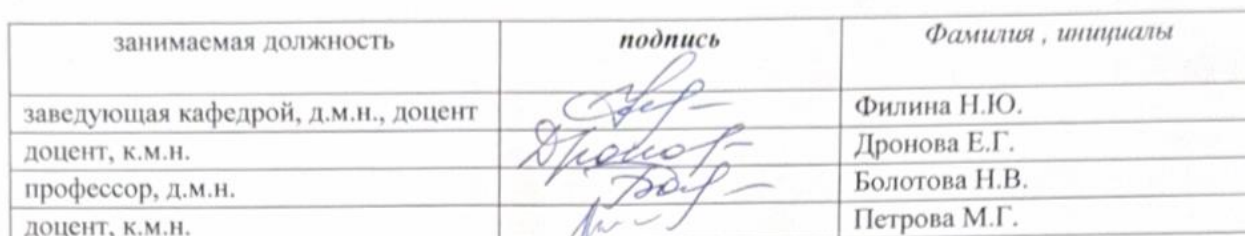 занимаемая должность подпись Фамилия , инициалы
заведующая кафедрой, д.м.н., доцент Филина Н.Ю.
доцент, к.м.н. Дронова Е.Г.
профессор, д.м.н. Болотова Н.В.
доцент, к.м.н. Петрова М.Г.